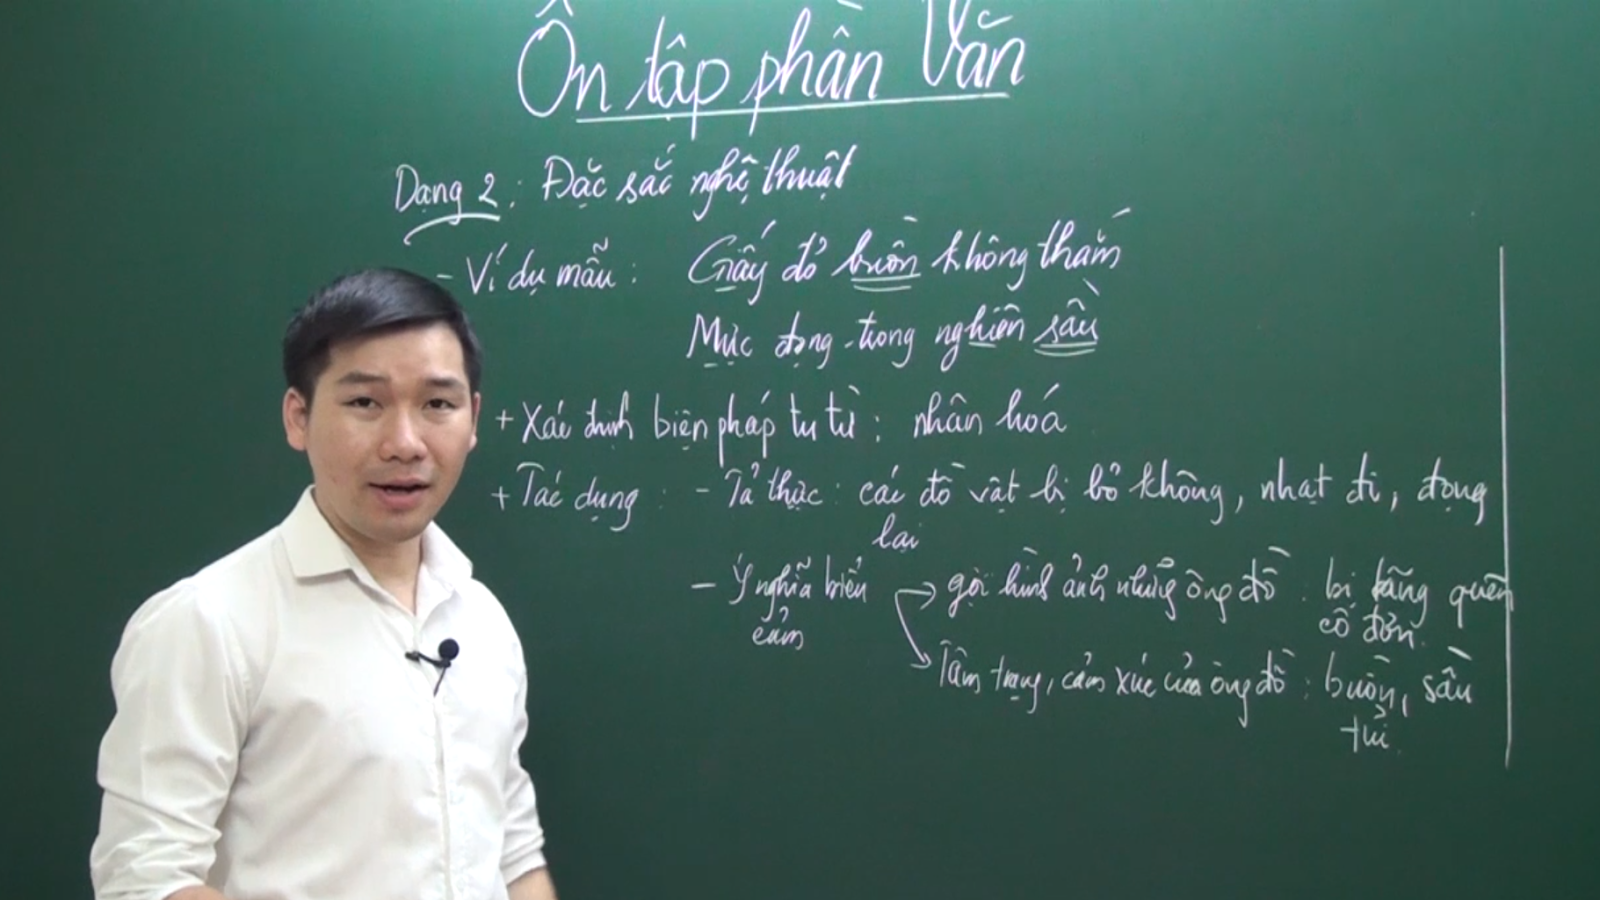 Ôn tập phần Văn
Dạng 2: Đặc sắc nghệ thuật
- Ví dụ mẫu: Giấy đỏ buồn không thắm
Mực đọng trong nghiên sầu
+ Xác định biện pháp tu từ: nhân hoá
+ Tác dụng: - Tả thực: các đồ vật bị bỏ không, nhạt đi, đọng
lại
- Ý nghĩa biểu → gợi hình ảnh những ông đồ: bị lãng quên
cảm cô đơn.
→ Tâm trạng, cảm xúc của ông đồ: buồn, sầu
tủi.